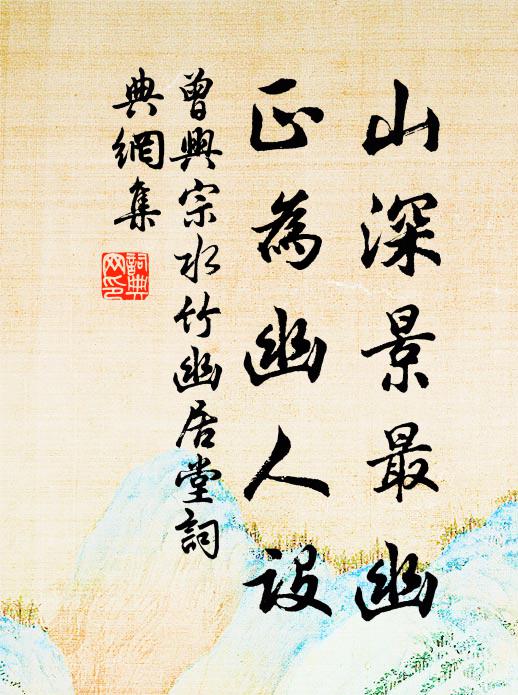 山深景最幽
正為幽人設
曾興宗水竹幽居堂詞
典網集
詞典
网印